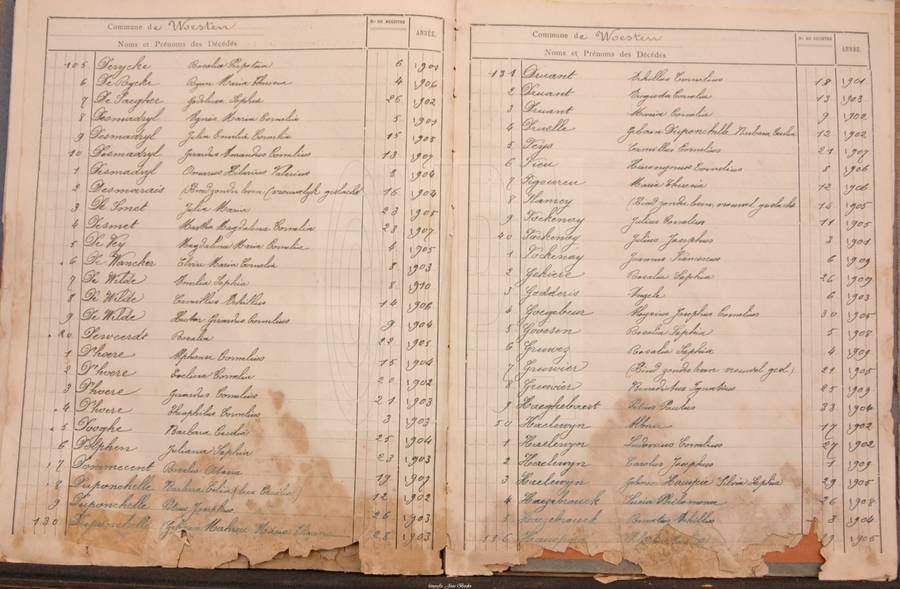 Commune de Woesten
Noms et Prénoms des Décédés
No DU REGISTRE
ANNÉE.
105 Derycke Rosalia 6 1901
6 De Rycke Maria Theresia 4 1906
7 De Saegher Sophia 26 1902
8 Desmadryl Agnes Maria Cornelia 5 1901
9 Desmadryl Julia Emelia Cornelia 15 1903
10 Desmadryl Amandus Cornelius 13 1907
1 Desmadryl Omarus Hilarius Valerius 8 1904
2 Desmarais (Kind zonder leven (vrouwelijk geslacht) 16 1904
3 De Sonet Julia Maria 23 1905
4 Desmet Martha Magdalena Cornelia 23 1907
5 De Vey Magdalena Maria Cornelia 4 1905
6 De Wancker Elvira Maria Cornelia 8 1903
7 De Wilde Emelia Sophia 8 1910
8 De Wilde Camillus Achillus 14 1906
9 De Wilde Hector Girardus Cornelius 9 1904
20 Deweerdt Rosalia 22 1905
1 D'hoere Alphonse Cornelius 15 1904
2 D'hoere Evelina Cornelia 20 1902
3 D'hoere Girardus Cornelius 21 1903
4 D'hoere Theophilus Cornelius 3 1903
5 D'hooghe Barbara Cecilia 25 1904
6 Dolphen Juliana Sophia 23 1903
7 Dommecent Maria 19 1907
8 Duponchelle Barbara (Cecilia) 12 1902
9 Duponchelle Petrus Josephus 26 1903
130 Duponchelle (Geboren Mahieu Maria 28 1903
Commune de Woesten
Noms et Prénoms des Décédés
No DU REGISTRE
ANNÉE.
131 Druant Achillus Cornelius 18 1901
2 Druant Cornelia 13 1903
3 Druant Maria Cornelia 9 1902
4 Druelle Geboren Duponchelle Barbara Cecilia 12 1902
5 Feys Camillus Cornelius 21 1907
6 Fieu Hieronymus Cornelius 8 1906
7 Figoureu Maria Theresia 12 1906
8 Flamey (Kind zonder leven, vrouwel. geslacht) 14 1905
9 Fockenoy Julius Cornelius 11 1905
40 Fockenoy Julius Josephus 3 1901
1 Fockenoy Joannes Franciscus 6 1909
2 Gekiere Rosalia Sophia 26 1909
3 Godderis Angele 6 1903
4 Goegebeur Josephus Cornelius 30 1905
5 Goossen Rosalia Sophia 5 1908
6 Gruwez Rosalia Sophia 4 1909
7 Gruwier (Kind zonder leven vrouwel. gesl.) 21 1905
8 Gruwier Benedictus Ignatius 25 1909
9 Haeghebaert Petrus Paulus 33 1904
50 Haelewyn Albert 17 1902
1 Haelewyn Ludovicus Cornelius 27 1902
2 Haelewyn Carolus Josephus 1 1909
3 Haelewyn Geboren Silvia Sophia 29 1905
4 Haezebrouck Lucia Philomena 26 1908
5 Haezebrouck Achillus 3 1904
156 19 1905